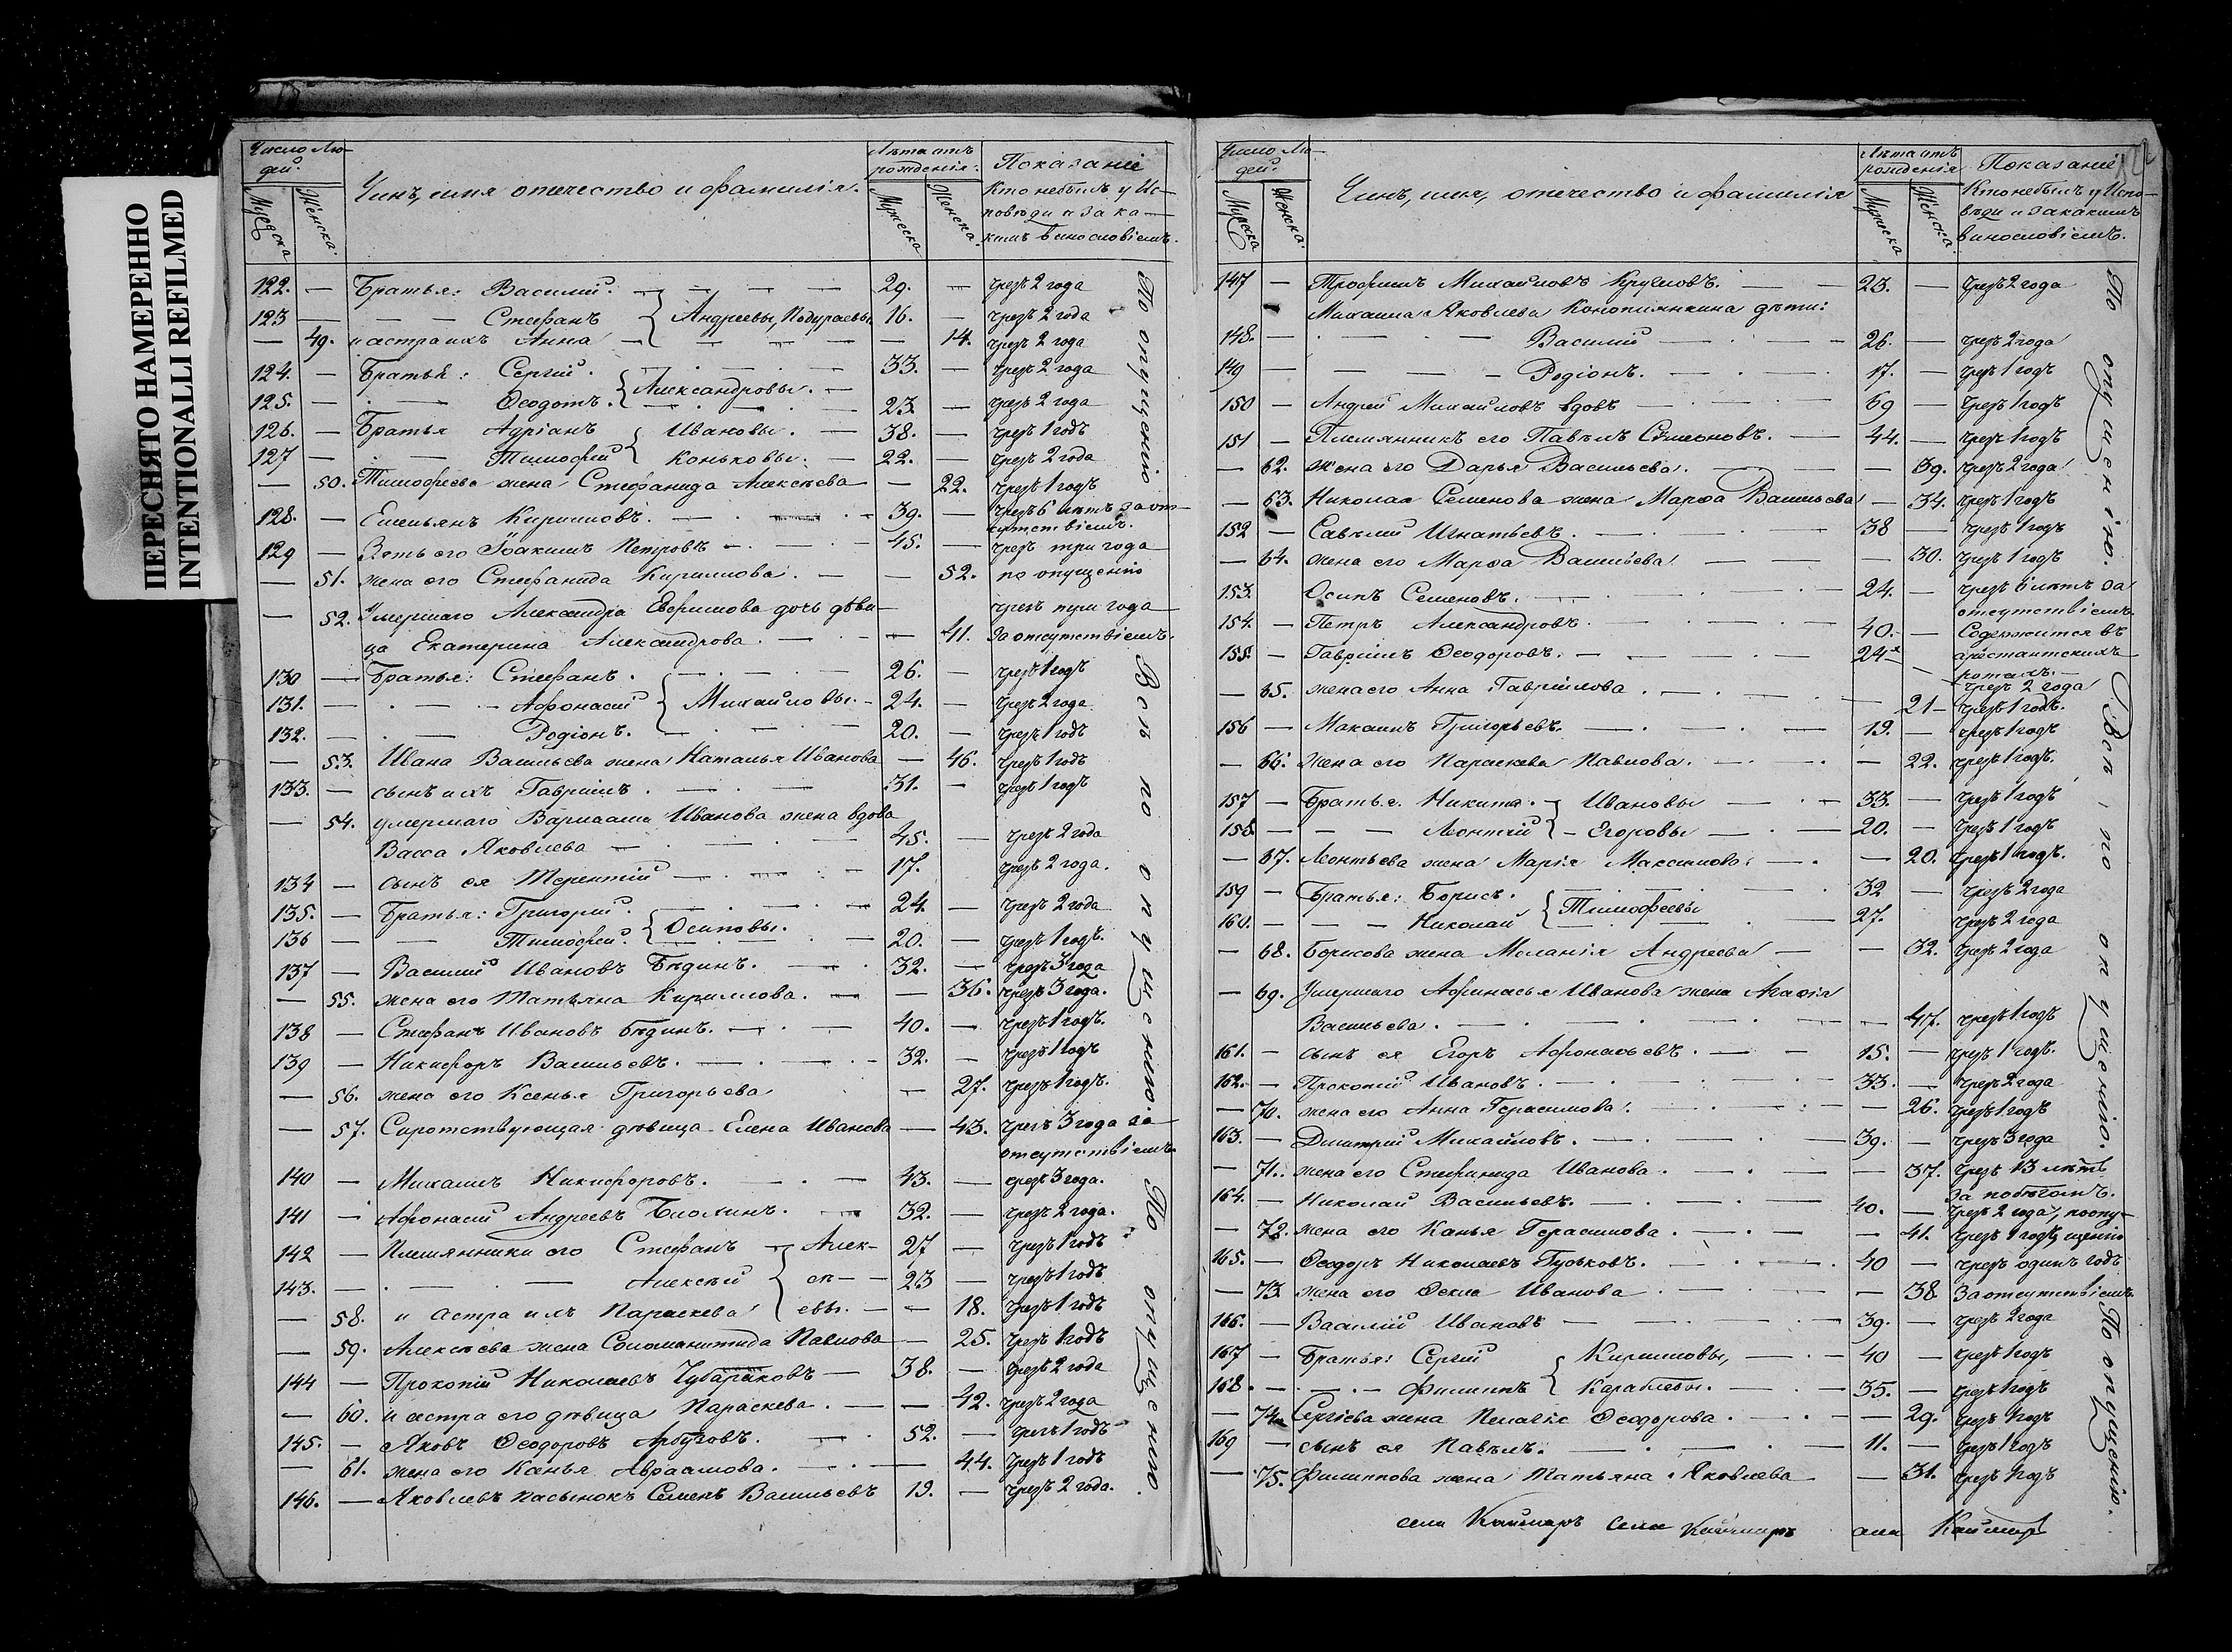 ПЕРЕСНЯТО НАМЕРЕННО
INTENTIONALLI REFILMED
Число Лю-
дей.
Мужеска
Женска.
Чинъ, имя отечество и фамилія.
Лѣта отъ
рожденія.
Мужеска
Женска.
Показаніе
Кто небылъ у Ис-
повѣди и за ка-
кимъ винословіемъ.
122. — Братья: Василий. — 29. — чрезъ 2 года
123 — Стефанъ { Андреевы, 16. — чрезъ 2 года
— 49. и астра ихъ Анна — 14. чрезъ 2 года
124. — Братья: Сергий. — 33. — чрезъ 2 года
125. — Ѳеодотъ. { Александровы. — 23. — чрезъ 2 года
126. — Братья Адріанъ { Ивановы. — 38. — чрезъ 1 годъ
127 — Тимофей { Коньковы. — 22. — чрезъ 2 года
— 50. Тимофеева жена Стефанида Алексѣева — 22. чрезъ 1 годъ
128. — Емельянъ Кириловъ. — 39. — чрезъ 6 лѣтъ за от-
сутствіемъ.
129 — Зять его Іоакимъ Петровъ — 45. — чрезъ три года
— 51. жена его Стефанида Кирилова. — 52. по опущенію
— 52. Умершаго Александра Евфимова дочь дѣви- чрезъ три года
ца Екатерина Александрова. — 41. за отсутствіемъ.
130 — Братья: Стефанъ. — 26. — чрезъ 1 годъ
131. — Афонасий { Михайловы. — 24. — чрезъ 2 года
132. — Родіонъ. — 20. — чрезъ 1 годъ
— 53. Ивана Васильева жена Наталья Иванова — 46. чрезъ 1 годъ
133. — сынъ ихъ Гавріилъ. — 31. — чрезъ 1 годъ
— 54. умершаго Варлаама Иванова жена вдова
Васса Яковлева — 45. — чрезъ 2 года
134 — сынъ ея Терентій — 17. чрезъ 2 года.
135. — Братья: Григорий. — 24. — чрезъ 2 года
136 — Тимофей. { Осиповы. — 20. — чрезъ 1 годъ.
137 — Василий Ивановъ Бѣдинъ. — 32. — чрезъ 3 года
— 55. жена его Татьяна Кириллова. — 36. чрезъ 3 года.
138 — Стефанъ Ивановъ Бѣдинъ. — 40. — чрезъ 1 годъ.
139 — Никифоръ Васильевъ. — 32. — чрезъ 1 годъ
— 56. жена его Ксенья Григорьева — 27. чрезъ 1 годъ.
— 57. Сиротствующая дѣвица Елена Иванова — 43. чрезъ 3 года за
отсутствіемъ
140 — Михаилъ Никифоровъ. — 43. — чрезъ 3 года.
141 — Афонасий Андреевъ — 32. — чрезъ 2 года.
142 — Племянники его Стефанъ } Алек- 27 — чрезъ 1 годъ
143. — Алексѣй } сѣ- — 23 — чрезъ 1 годъ
— 58. и астра ихъ Параскева } евы. — 18. чрезъ 1 годъ
— 59. Алексѣева жена Соломанитида Павлова — 25. чрезъ 1 годъ
144 — Прокопій Николаевъ Чубариковъ — 38. — чрезъ 2 года
— 60. и астра его дѣвица Параскева. — 42. чрезъ 2 года
145. — Яковъ Ѳеодоровъ Арбузовъ. — 52. — чрезъ 1 годъ
— 61. жена его Ксенья Авраамова. — 44. чрезъ 1 годъ
146. — Яковлевъ пасынокъ Семенъ Васильевъ 19. — чрезъ 2 года.
По опущенію
Всѣ по опущенію.
По опущенію.
Число Лю-
дей.
Мужеска
Женска.
Чинъ, имя, отечество и фамилія
Лѣта отъ
рожденія
Мужеска
Женска.
Показаніе
Кто небылъ у Испо-
вѣди и закакимъ
винословіемъ.
147 — Трофимъ Михайловъ Кругловъ. — 23. — чрезъ 2 года
Михаила Яковлева Конопляикина дѣти:
148. — Василий — 26. — чрезъ 2 года
149 — Родіонъ. — 17. — чрезъ 1 годъ
150 — Андрей Михайловъ вдовъ — 69 — чрезъ 1 годъ
151 — Племянникъ его Павелъ Симеоновъ. — 44. — чрезъ 1 годъ
— 62. жена его Дарья Васильева. — 39. чрезъ 2 года
— 63. Николая Семенова жена Марѳа Васильева — 34. чрезъ 1 годъ
152 — Савелий Игнатьевъ. — 38 — чрезъ 1 годъ
— 64. жена его Марѳа Васильева — 30. чрезъ 1 годъ
153. Осипъ Семеновъ. — 24. — чрезъ 6 лѣтъ за
отсутствіемъ
154. — Петръ Александровъ. — 40. — Содержится въ
155. — Гавріилъ Ѳеодоровъ. — 24 — арестантскихъ
ротахъ. —
чрезъ 2 года
— 65. жена его Анна Гавріилова. — 21 — чрезъ 1 годъ.
156 — Макаилъ Григорьевъ. — 19. — чрезъ 1 годъ
— 66. Жена его Параскева Павлова. — 22. чрезъ 1 годъ.
157 — Братья. Никита. } Ивановы — 33. — чрезъ 1 годъ
158. — Леонтій } Егоровы — 20. — чрезъ 1 годъ
— 67. Леонтьева жена Марія Максимова. — 20. чрезъ 1 годъ.
159 — Братья: Борисъ. — 32 — чрезъ 2 года
160. — Николай { Тимофеевы — 27. чрезъ 2 года
— 68. Борисова жена Меланія Андреева — 32. чрезъ 2 года
— 69. Умершаго Афинасья Иванова жена Агаѳія
Васильева. — 47. чрезъ 1 годъ
161. — сынъ ея Егоръ Афонасьевъ. — 15. — чрезъ 1 годъ.
162. — Прокопій Ивановъ. — 33. — чрезъ 2 года
— 70. жена его Анна Герасимова. — 26. чрезъ 1 годъ
163. — Дмитрій Михайловъ. — 39. — чрезъ 3 года
— 71. жена его Стефанида Иванова. — 37. чрезъ 13 лѣтъ
за побѣгомъ.
164. — Николай Васильевъ. — 40. — чрезъ 2 года, поопу-
— 72. жена его Ксенья Герасимова. — 41. чрезъ 1 годъ, щенію
165. — Ѳеодоръ Николаевъ Гуськовъ. — 40 — чрезъ одинъ годъ
— 73. жена его Ѳекла Иванова — 38 За отсутствіемъ
166. — Василий Ивановъ — 39. — чрезъ 2 года
167 — Братья: Сергий { Кириловы, — 40 — чрезъ 1 годъ
168. — Филиппъ { Караблевы. — 35. — чрезъ 1 годъ
— 74 Сергіева жена Пелагіе Ѳеодорова. — 29. чрезъ 1 годъ
169 — сынъ ея Павелъ. — 11. — чрезъ 1 годъ
— 75. Филиппова жена Татьяна Яковлева — 31. чрезъ 1 годъ
По опущенію.
Всѣ по опущенію.
По опущенію.
села Каймаръ села Каймаръ села Каймаръ